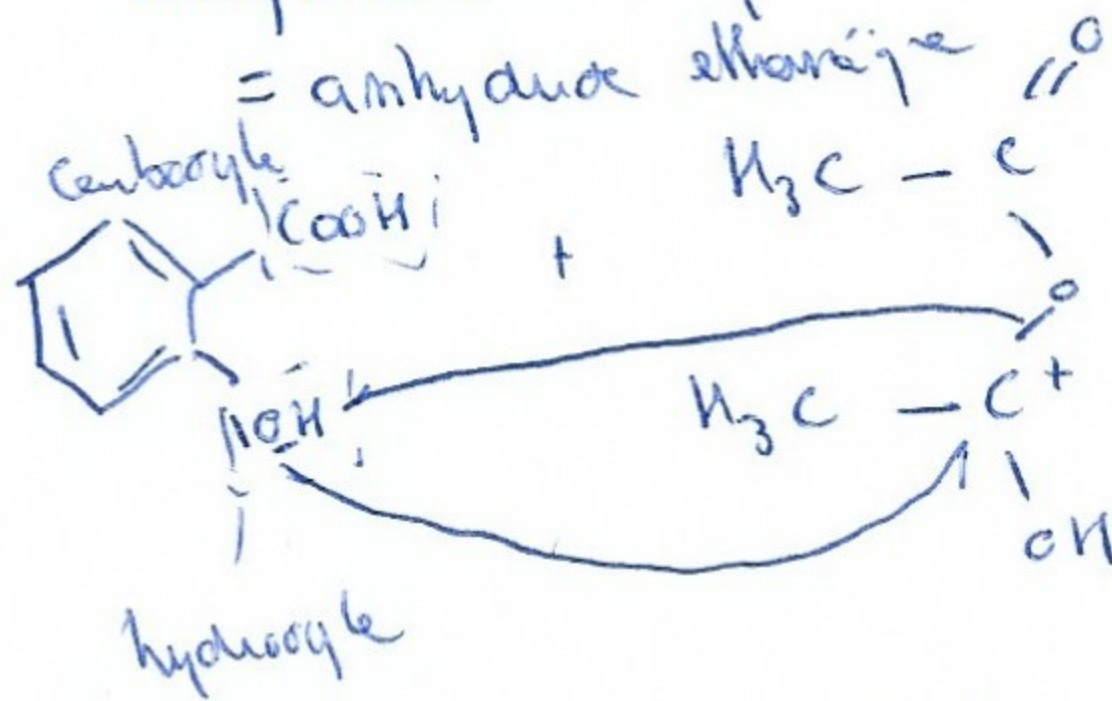 = anhydride éthanoïque
O
carboxyle
H₃C – C
COOH
+
O
H₃C – C⁺
OH
OH
hydroxyle